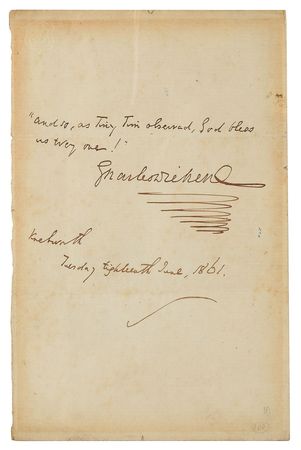 "and so, as Tiny Tim observed, God bless
us every one!"
Charles Dickens
Knebworth
Tuesday Eighteenth June, 1861.